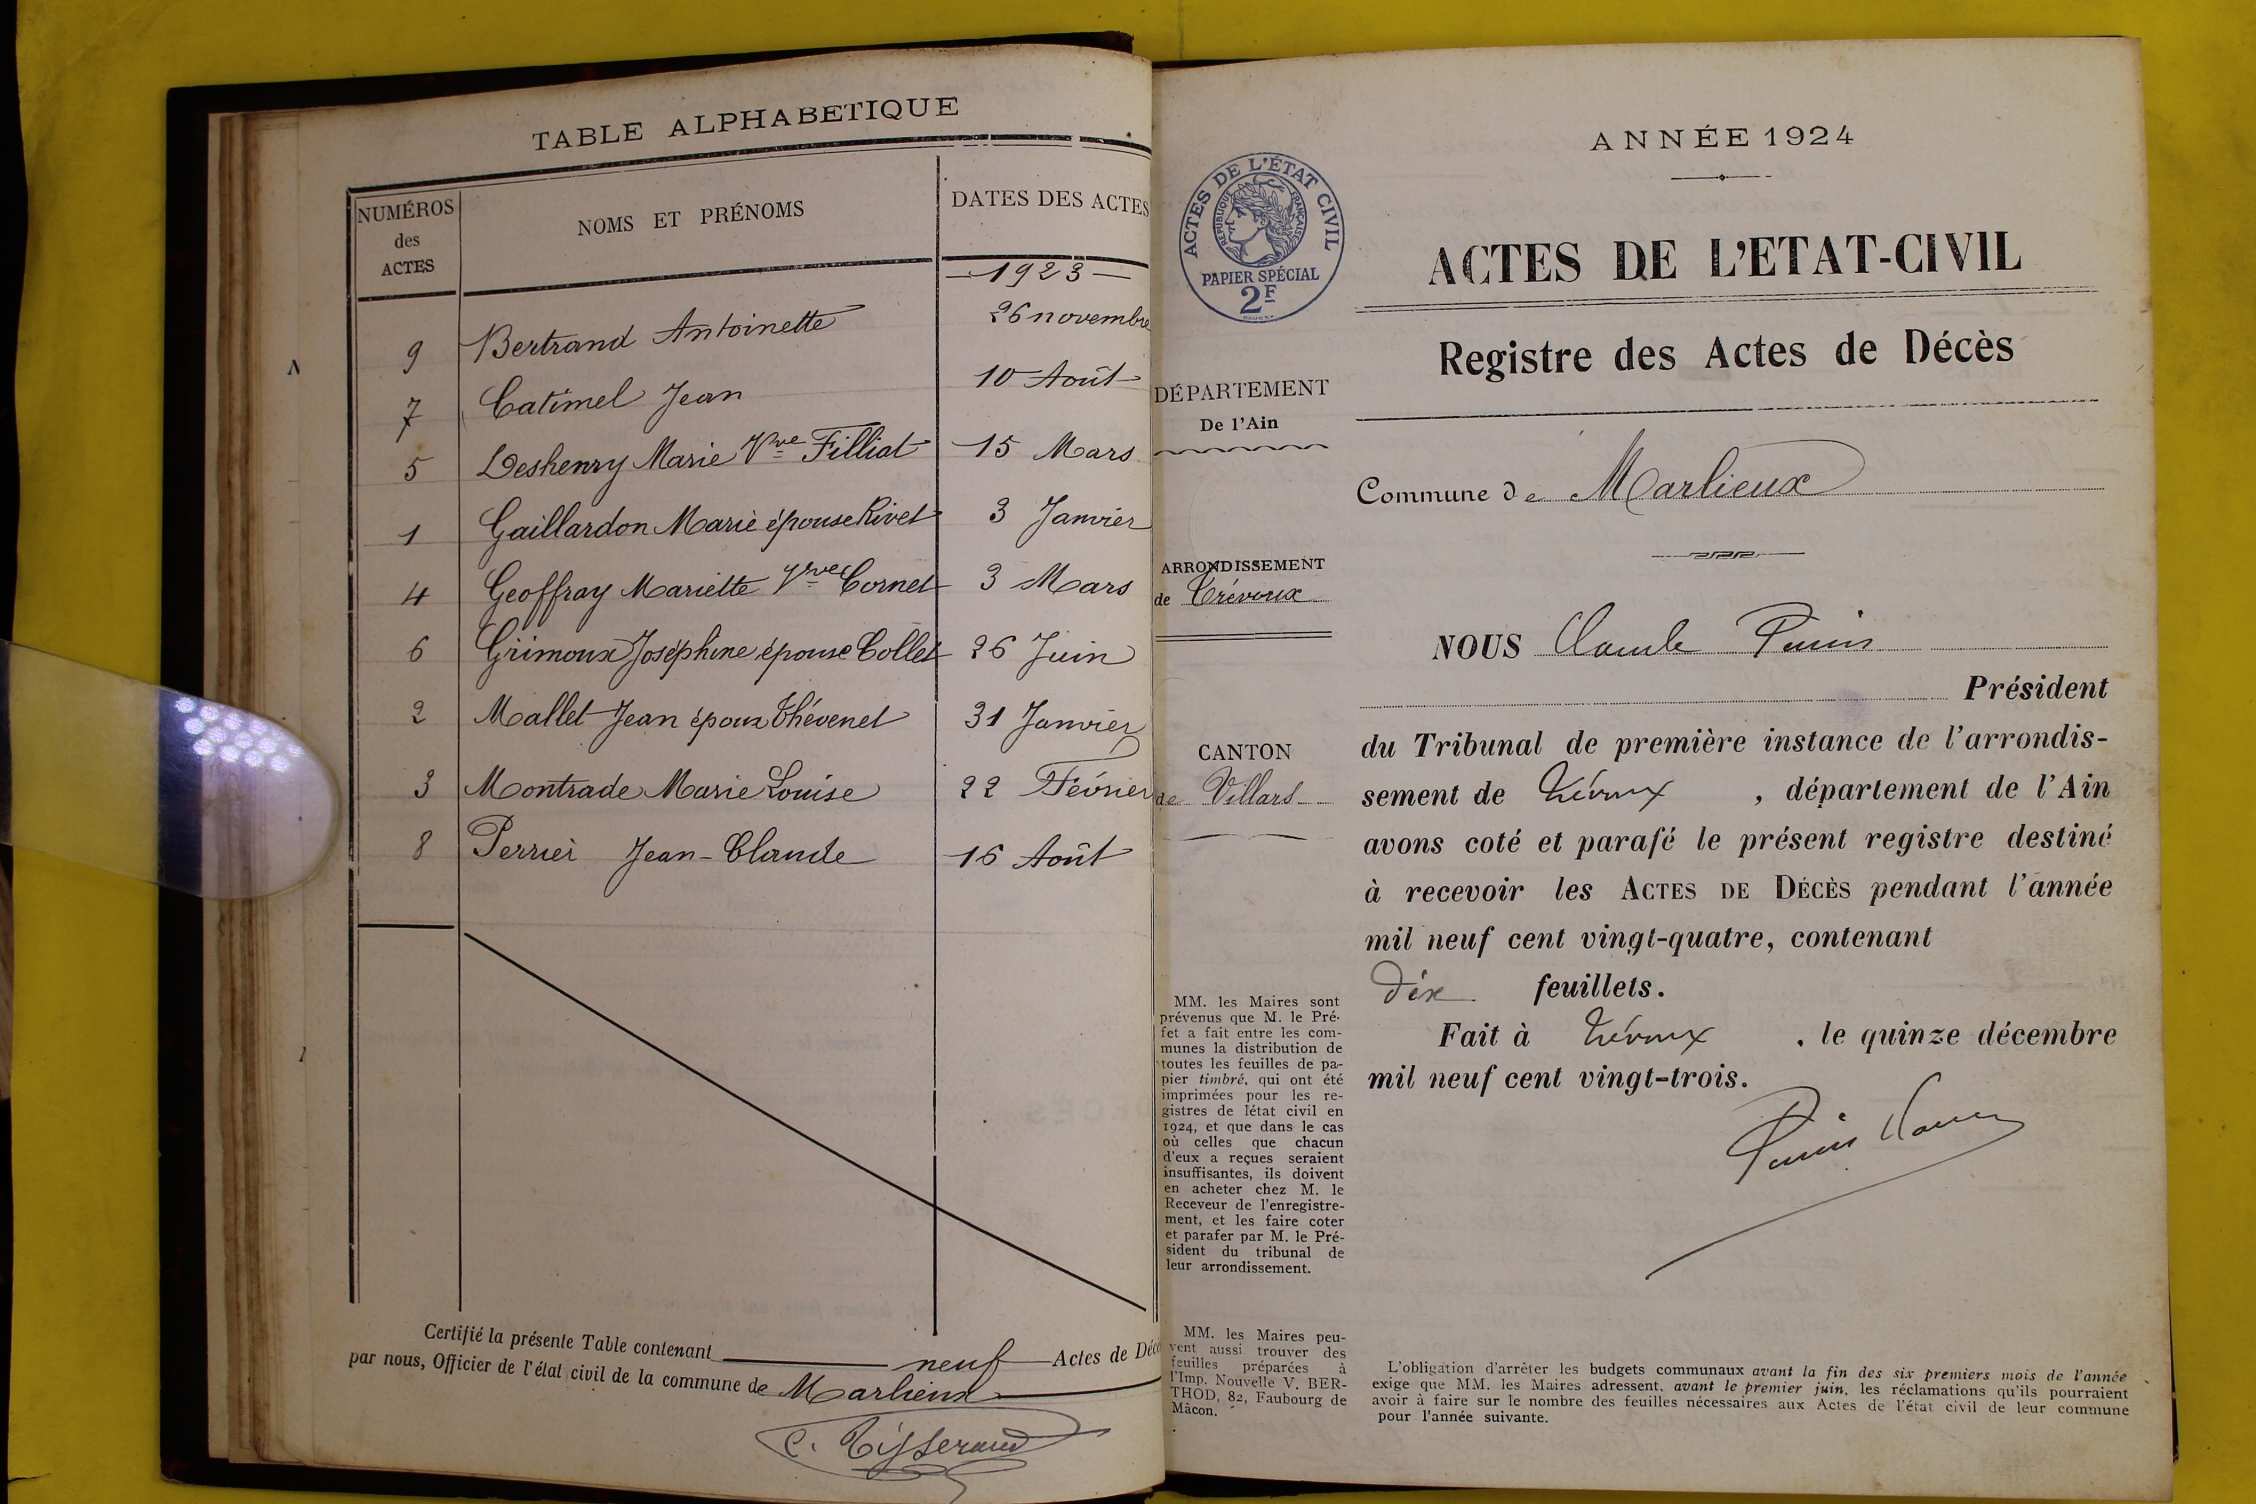 TABLE ALPHABETIQUE
NUMÉROS des ACTES
NOMS ET PRÉNOMS
DATES DES ACTES
1923
9 Bertrand Antoinette 26 novembre
7 Catimel Jean 10 Août
5 Deshenry Marie Vve Filliat 15 Mars
1 Gaillardon Marie épouse Rivet 3 Janvier
4 Geoffray Mariette Vve Cornet 3 Mars
6 Grimoux Joséphine épouse Collet 26 Juin
2 Mallet Jean époux Thévenet 31 Janvier
3 Montrade Marie Louise 22 Février
8 Perrier Jean-Claude 16 Août
Certifié la présente Table contenant neuf Actes de Décè
par nous, Officier de l'état civil de la commune de Marlieux
C. Tisserand
ACTES DE L'ÉTAT CIVIL
RÉPUBLIQUE FRANÇAISE
PAPIER SPÉCIAL
2F
DÉPARTEMENT
De l'Ain
ARRONDISSEMENT
de Trévoux
CANTON
de Villars
MM. les Maires sont
prévenus que M. le Pré-
fet a fait entre les com-
munes la distribution de
toutes les feuilles de pa-
pier timbré, qui ont été
imprimées pour les re-
gistres de létat civil en
1924, et que dans le cas
où celles que chacun
d'eux a reçues seraient
insuffisantes, ils doivent
en acheter chez M. le
Receveur de l'enregistre-
ment, et les faire coter
et parafer par M. le Pré-
sident du tribunal de
leur arrondissement.
MM. les Maires peu-
vent aussi trouver des
feuilles préparées à
l'Imp. Nouvelle V. BER-
THOD, 82, Faubourg de
Mâcon.
ANNÉE 1924
ACTES DE L'ETAT-CIVIL
Registre des Actes de Décès
Commune de Marlieux
NOUS Claude
Président
du Tribunal de première instance de l'arrondis-
sement de Trévoux, département de l'Ain
avons coté et parafé le présent registre destiné
à recevoir les ACTES DE DÉCÈS pendant l'année
mil neuf cent vingt-quatre, contenant
dix feuillets.
Fait à Trévoux, le quinze décembre
mil neuf cent vingt-trois.
L'obligation d'arrêter les budgets communaux avant la fin des six premiers mois de l'année
exige que MM. les Maires adressent, avant le premier juin, les réclamations qu'ils pourraient
avoir à faire sur le nombre des feuilles nécessaires aux Actes de l'état civil de leur commune
pour l'année suivante.